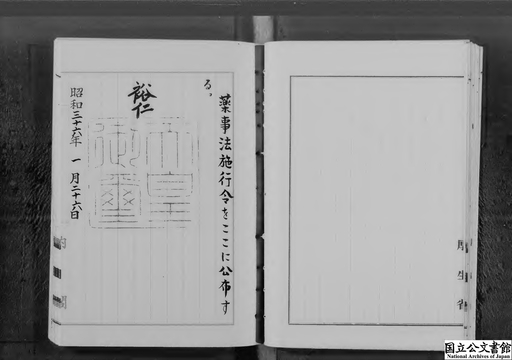 厚生省
薬事法施行令をここに公布す
る。
裕仁
天皇
御璽
昭和三十六年一月二十六日
国立公文書館
National Archives of Japan